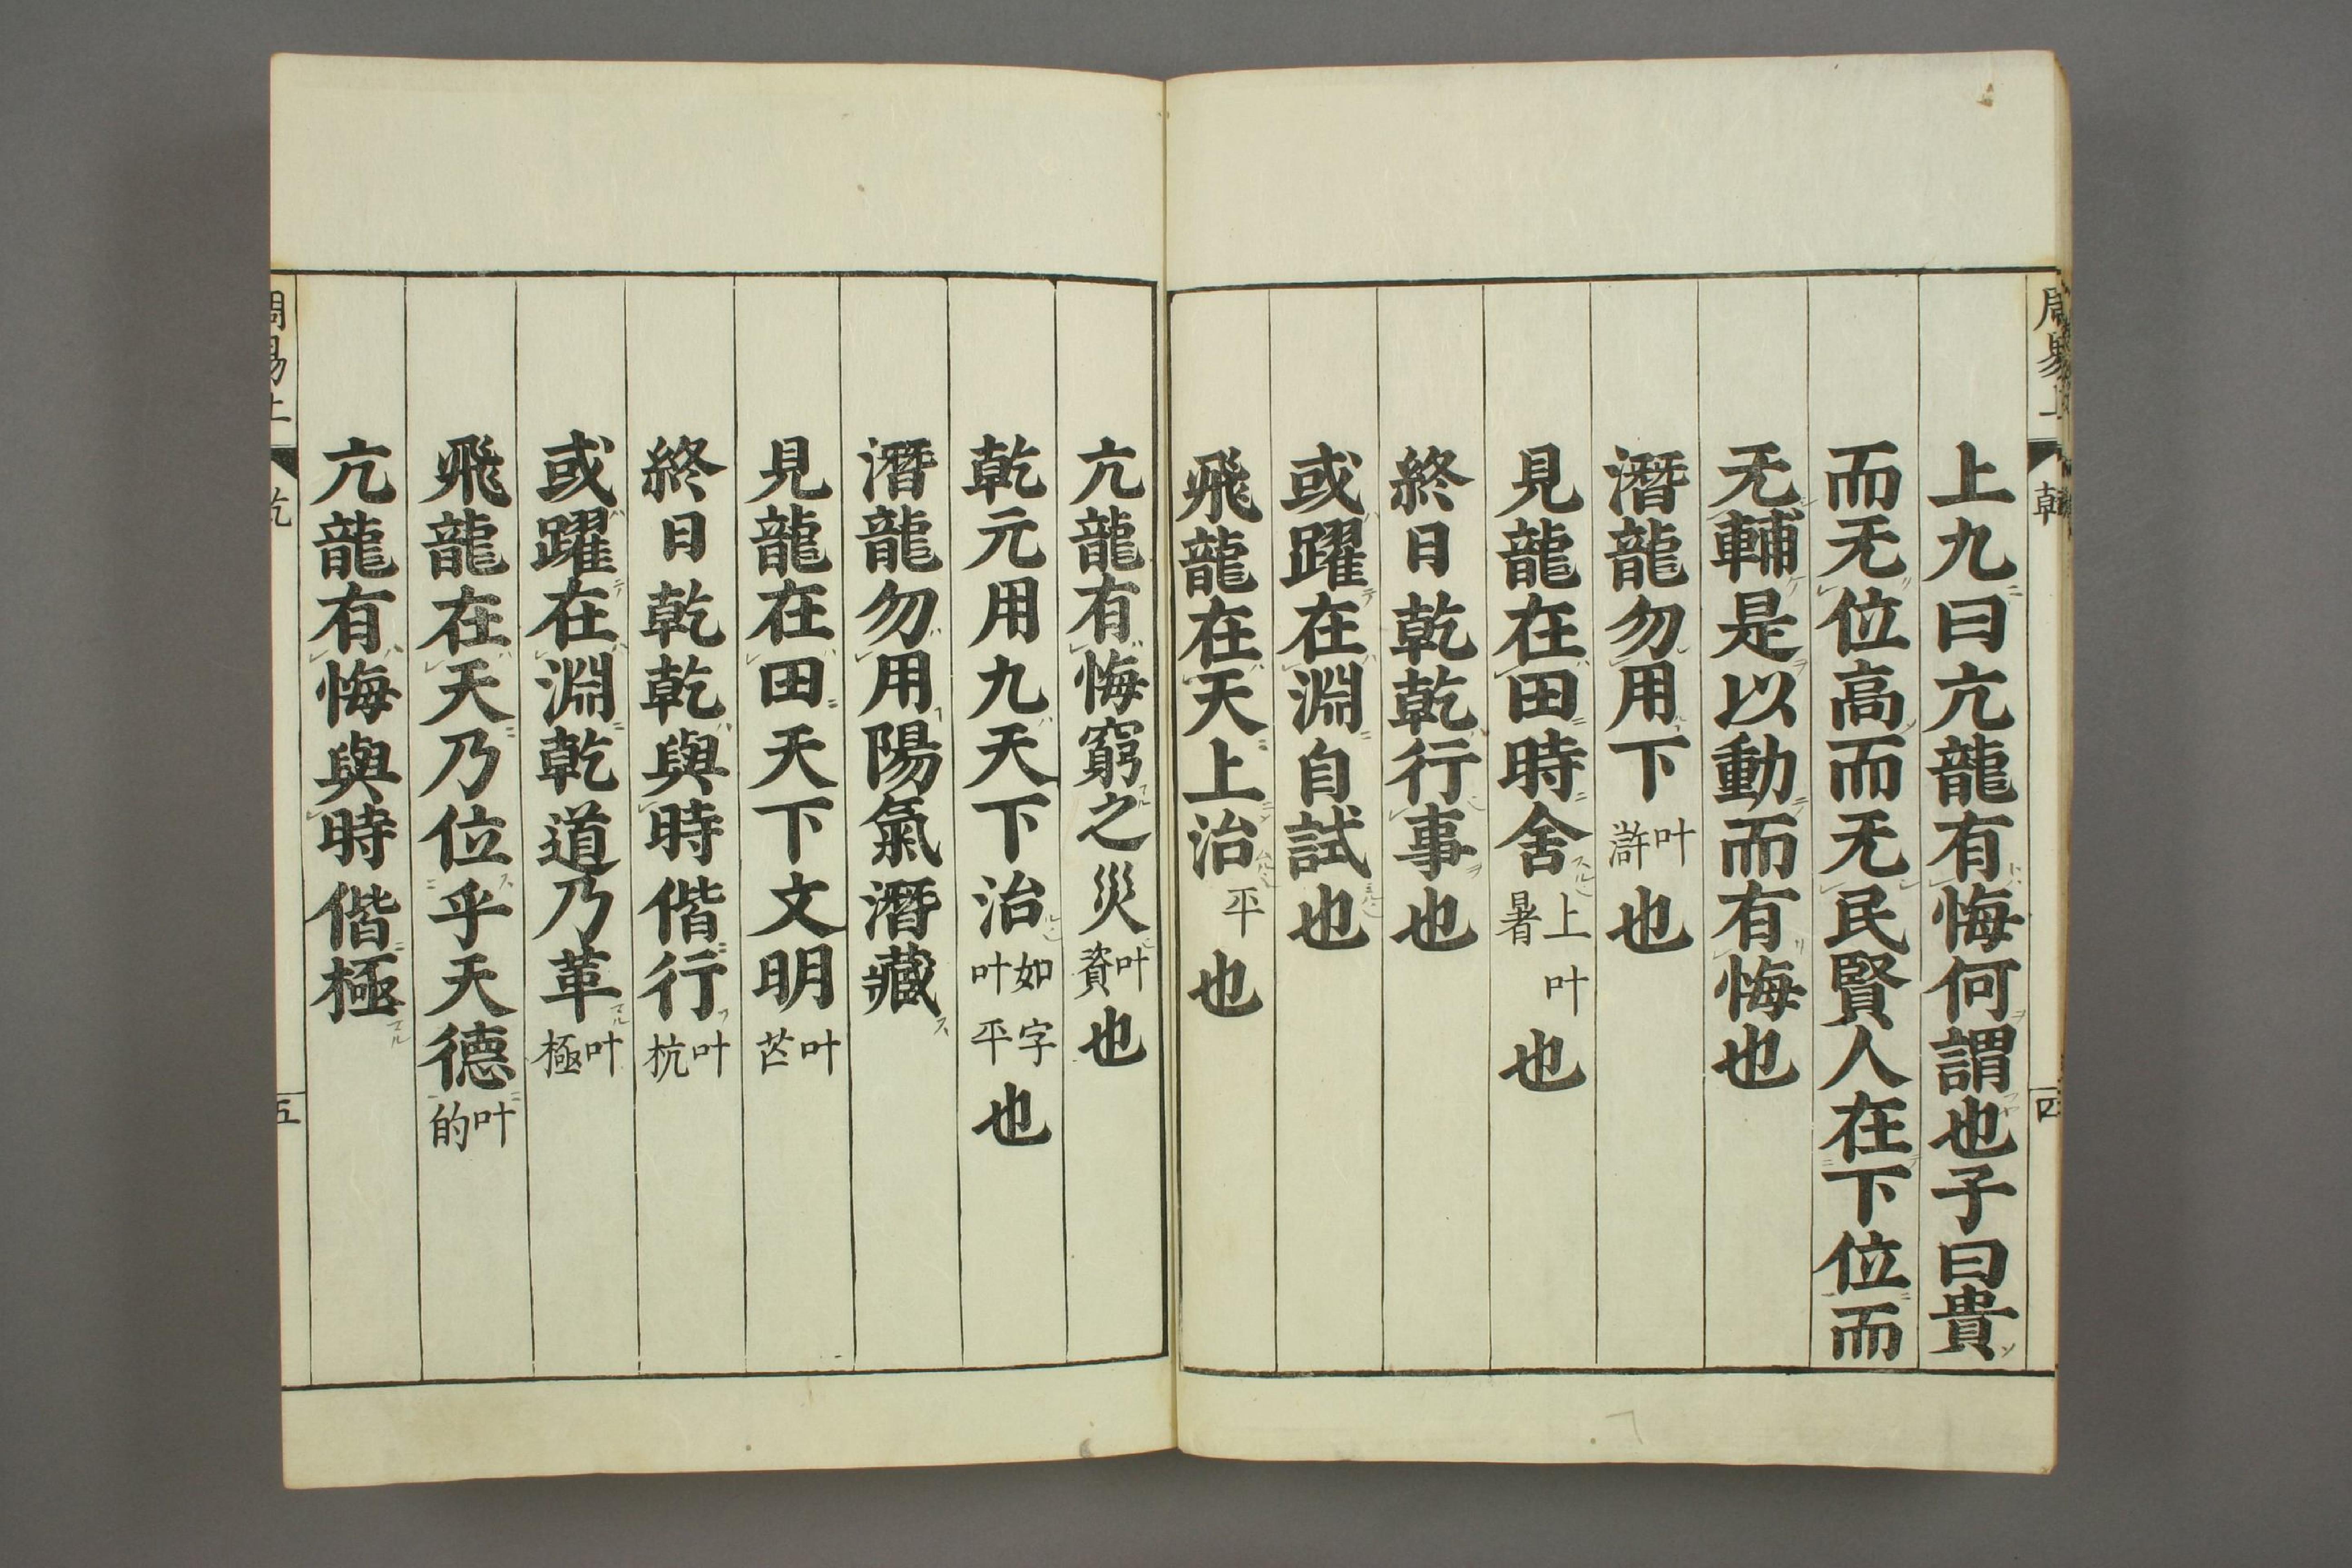 周易上 乾 四
上九曰亢龍有悔何謂也子曰貴
而无位高而无民賢人在下位而
无輔是以動而有悔也
潛龍勿用下叶滸也
見龍在田時舍上叶暑也
終日乾乾行事也
或躍在淵自試也
飛龍在天上治平也
亢龍有悔窮之災叶資也
乾元用九天下治如字叶平也
潛龍勿用陽氣潛藏
見龍在田天下文明叶芒
終日乾乾與時偕行叶杭
或躍在淵乾道乃革叶極
飛龍在天乃位乎天德叶的
亢龍有悔與時偕極
周易上 乾 五